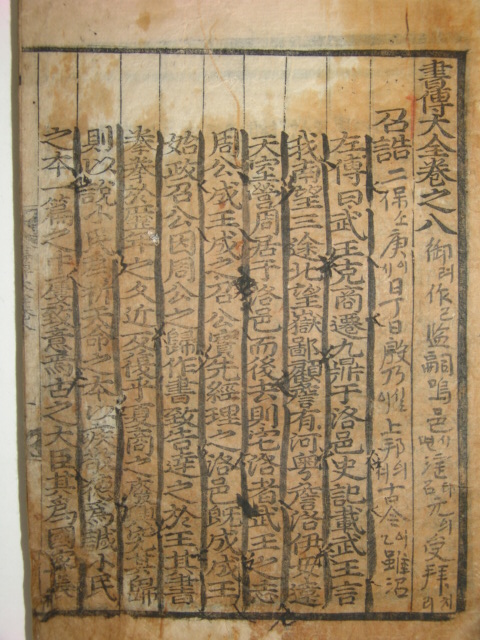 書傳大全卷之八
召誥
左傳曰武王克商遷九鼎于洛邑史記載武王言
我南望三途北望嶽鄙顧詹有河粤詹洛伊毋遠
天室營周居于洛邑而後去則宅洛者武王之志
周公成王成之召公實先經理之洛邑既成成王
始政召公因周公之歸作書致告達之於王其書
拳拳於歷年之久近反復乎夏商之廢興究其歸
則以諴小民為祈天命之本以疾敬德為諴小民
之本一篇之中屢致意焉古之大臣其為國家長